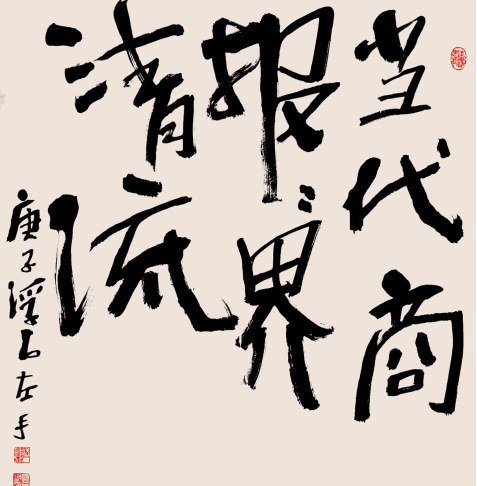 当代商
报々界
清流
庚子浮石左手